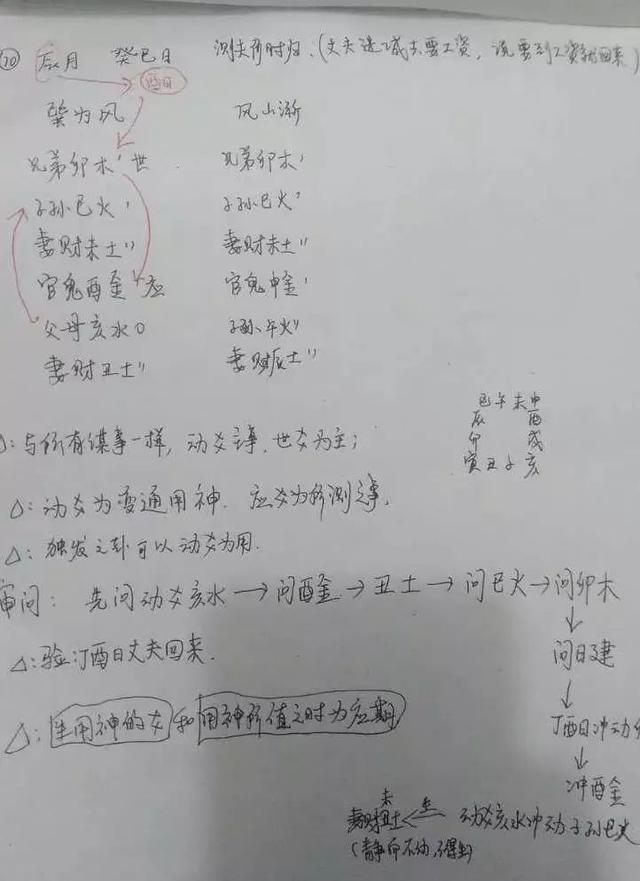 ⑳ 辰月 癸巳日 测夫何时归:(丈夫进城去要工资，说要到工资就回来)
巽为风 风山渐
兄弟卯木' 世 兄弟卯木'
子孙巳火' 子孙巳火'
妻财未土'' 妻财未土''
官鬼酉金' 应 官鬼申金'
父母亥水〇 子孙午火''
妻财丑土'' 妻财辰土''
巳午未申
辰 酉
卯 戌
寅丑子亥
△:与所有谋事一样，动爻主事，世爻为主;
△:动爻为变通用神. 应爻为所测之事.
△:独发之卦可以动爻为用.
审问: 先问动爻亥水→问酉金→丑土→问巳火→问卯木
↓
△:验:丁酉日丈夫回来. 问日建
↓
△:生用神的爻和用神所值之时为应期 丁酉日冲动
↓
冲酉金
未
妻财丑土←生 动爻亥水冲动子孙巳火
(静而不动,不得生)